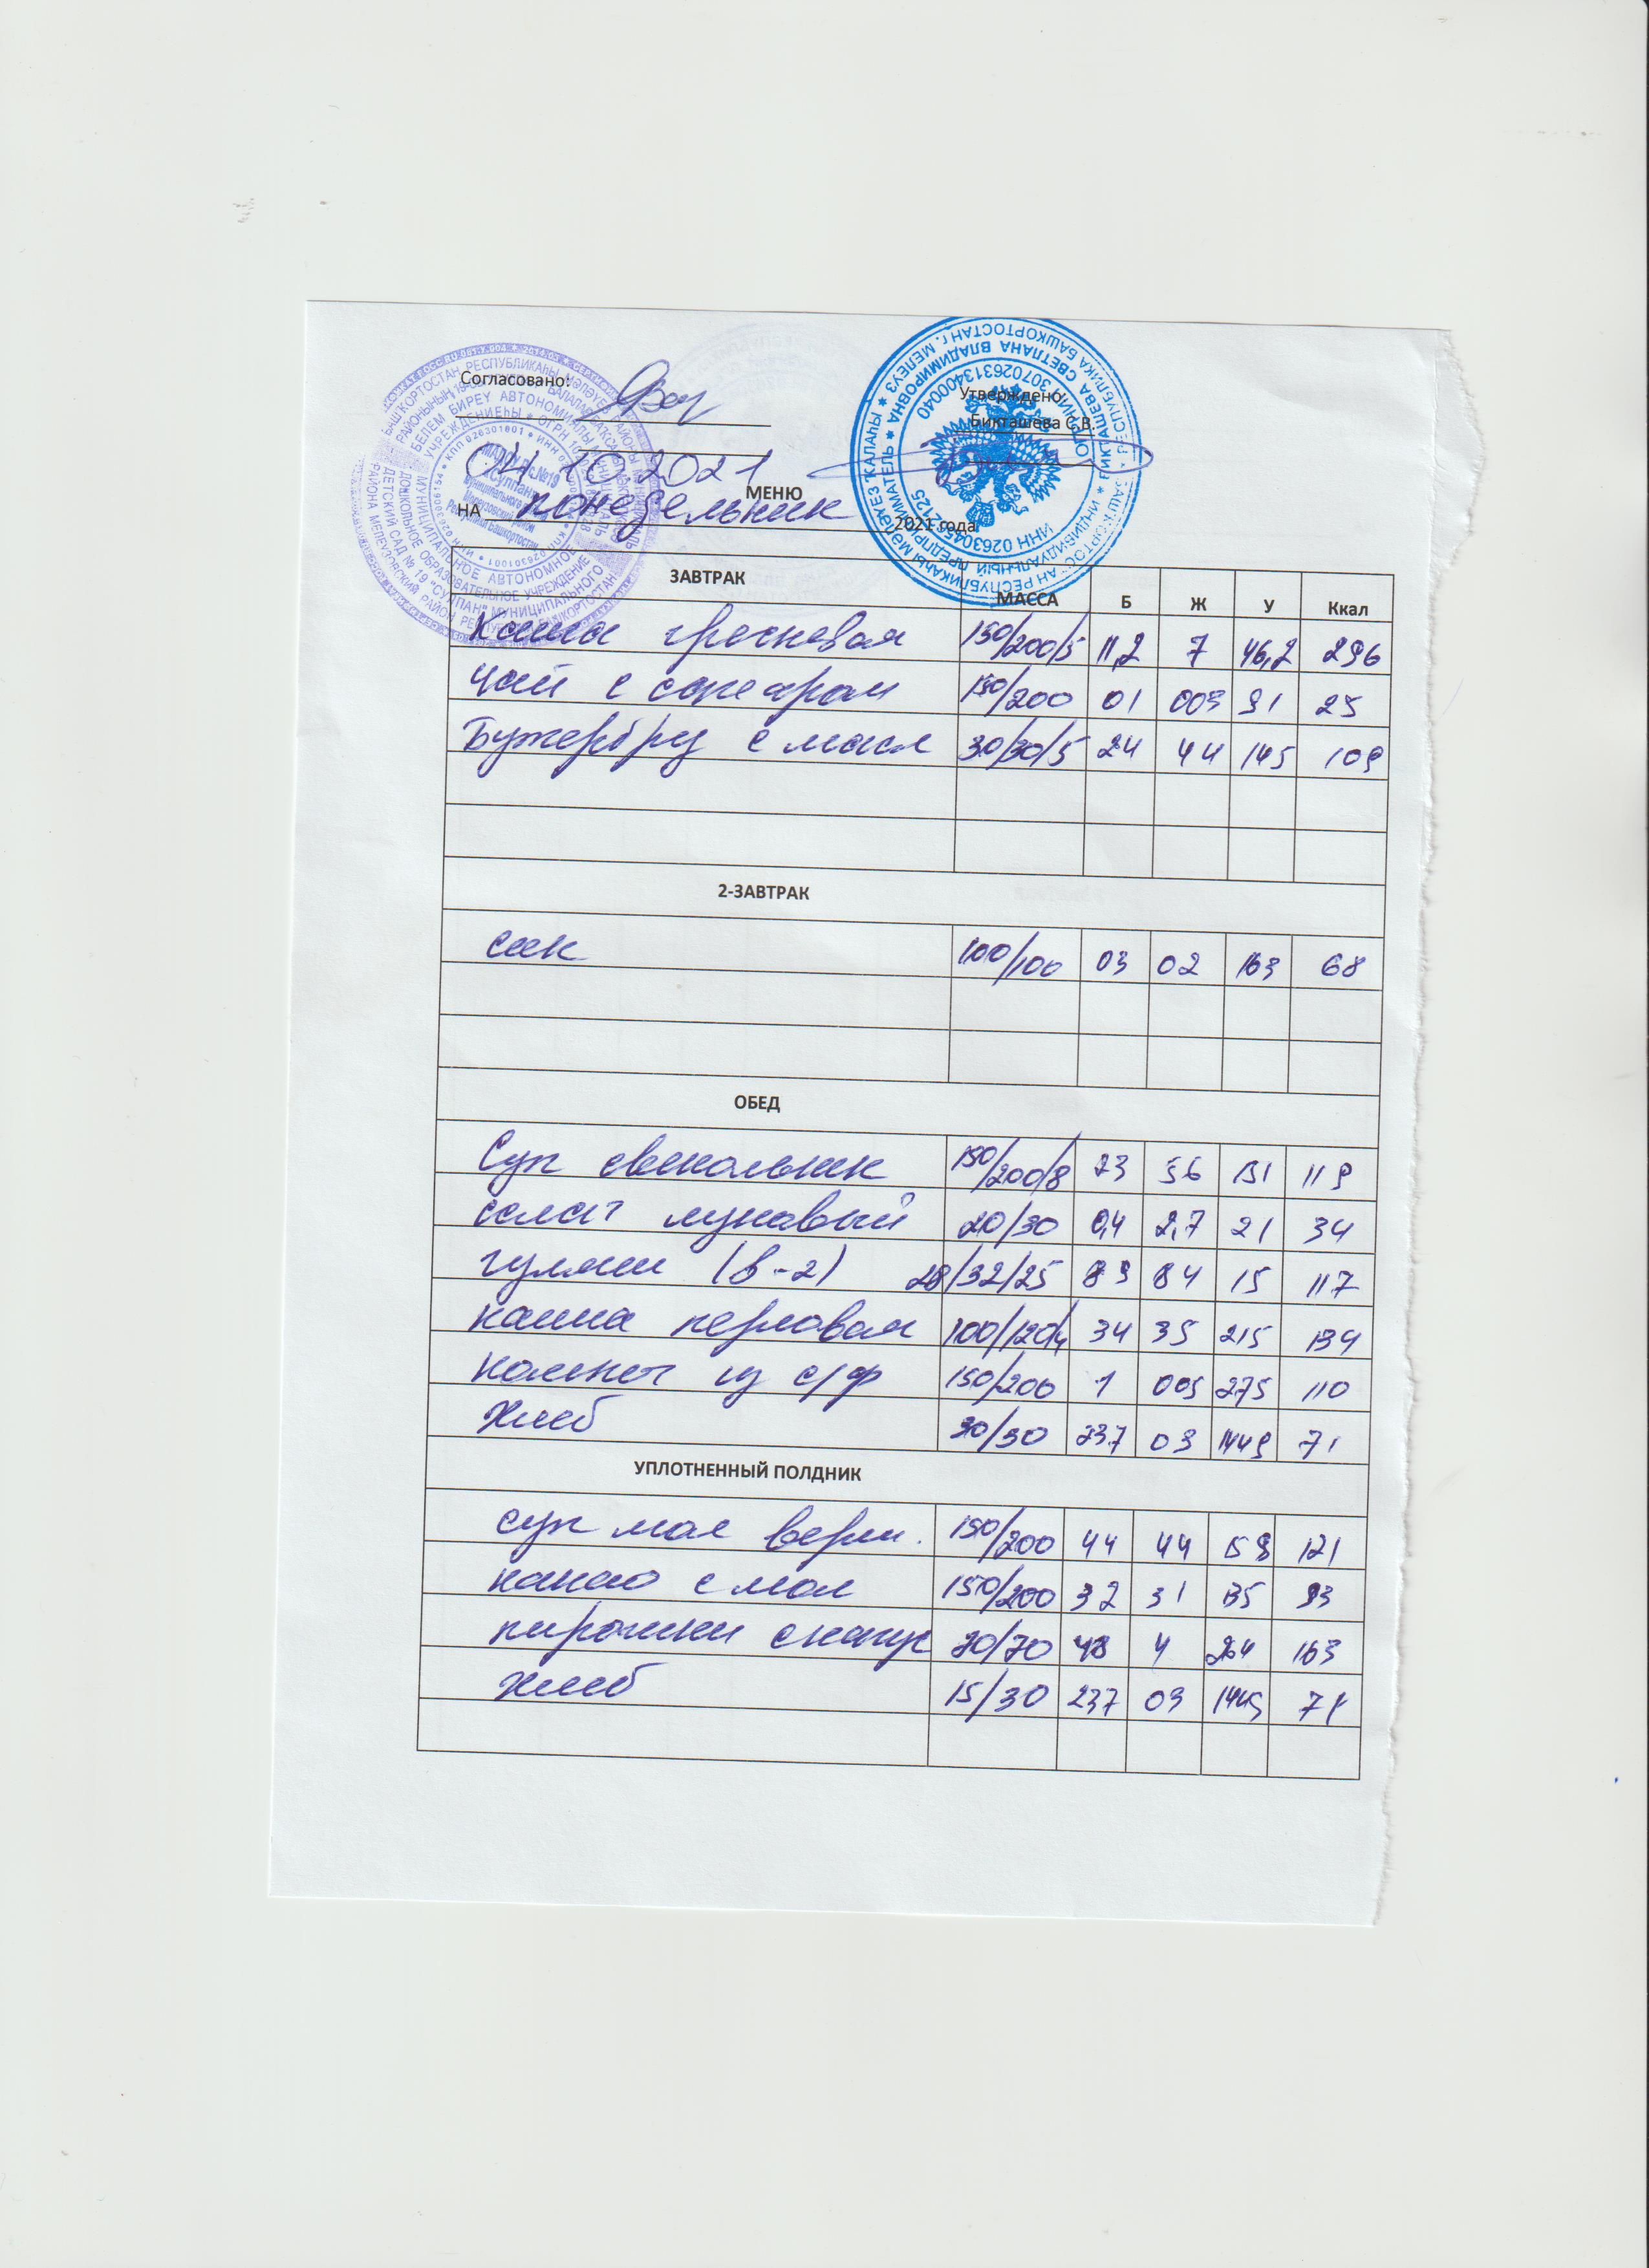 Согласовано:
Утверждено:
Бикташева С.В.
04.10.2021
МЕНЮ
НА понедельник 2021 года
ЗАВТРАК МАССА Б Ж У Ккал
Каша гречневая 150/200/5 11,2 7 46,2 296
Чай с сахаром 150/200 01 003 91 25
Бутербрд с масл 30/30/5 24 44 145 109
2-ЗАВТРАК
сок 100/100 03 02 163 68
ОБЕД
Суп свекольник 150/200/8 23 56 131 119
салат луковый 20/30 0,4 2,7 21 34
гуляш (в-2) 28/32/25 89 84 15 117
каша перловая 100/120/4 34 35 215 134
компот из с/ф 150/200 1 005 275 110
Хлеб 30/30 237 03 1449 71
УПЛОТНЕННЫЙ ПОЛДНИК
суп мол верм. 150/200 44 44 159 121
какао с мол 150/200 32 31 135 93
пирожки с капус 70/70 48 4 264 163
хлеб 15/30 237 03 1449 71